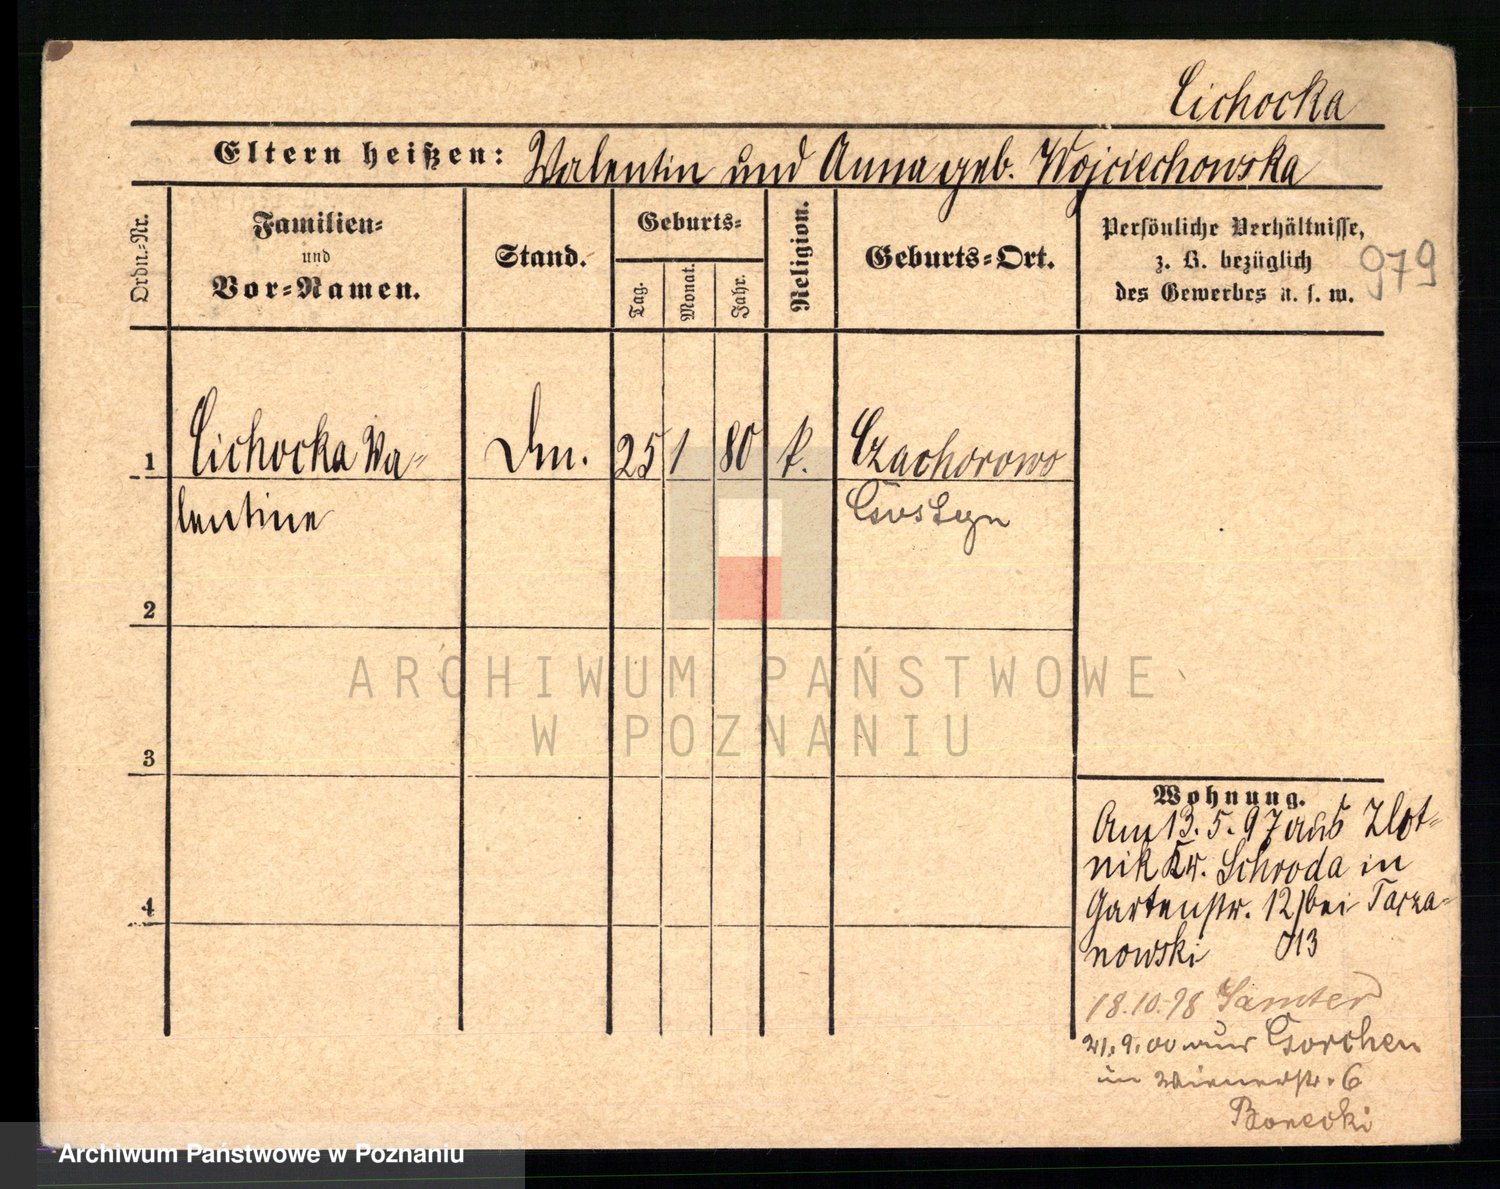 Cichocka
Eltern heißen: Valentin und Anna geb. Wojciechowska
Ordn.-Nr.
Familien-
und
Vor-Namen.
Stand.
Geburts-
Tag.
Monat.
Jahr.
Religion.
Geburts-Ort.
Persönliche Verhältnisse,
z. B. bezüglich
des Gewerbes u. s. w.
979
1 Cichocka Va- 25 1 80 k. Czachorowo
lentine Gostyn
2
3
4
Wohnung.
Am 13.5.97 aus Zlot-
nik Kr. Schroda in
Gartenstr. 12 bei Tarza-
nowski 13
18.10.98 Samter
21.9.00 aus Gorchen
in Wienerstr. 6
Borecki
ARCHIWUM PAŃSTWOWE
W POZNANIU
Archiwum Państwowe w Poznaniu